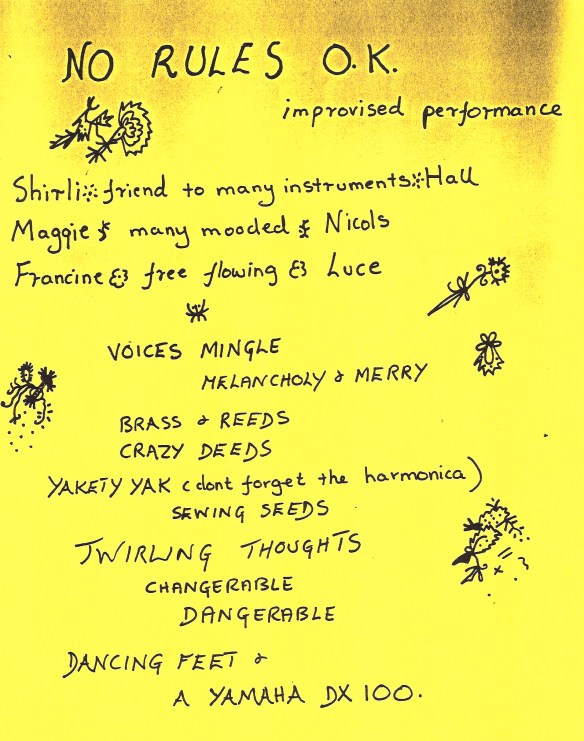 NO RULES O.K.
improvised performance
Shirli friend to many instruments Hall
Maggie many mooded Nicols
Francine free flowing Luce
VOICES MINGLE
MELANCHOLY & MERRY
BRASS & REEDS
CRAZY DEEDS
YAKETY YAK (dont forget the harmonica)
SEWING SEEDS
TWIRLING THOUGHTS
CHANGERABLE
DANGERABLE
DANCING FEET &
A YAMAHA DX 100.